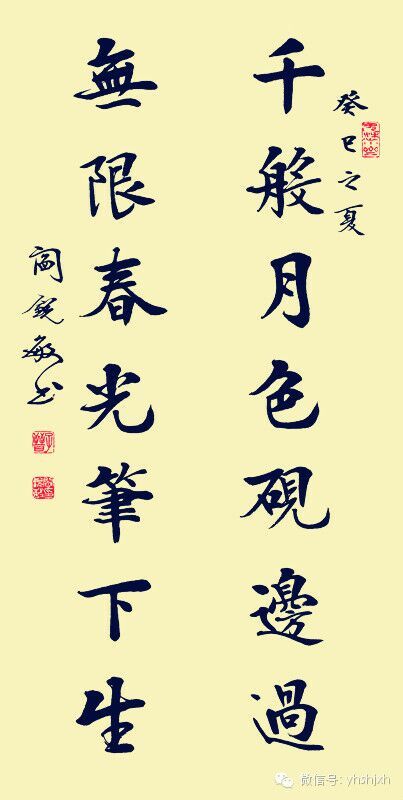 癸巳之夏
千般月色硯邊過
無限春光筆下生
阎锐敏书
微信号: yhshjxh